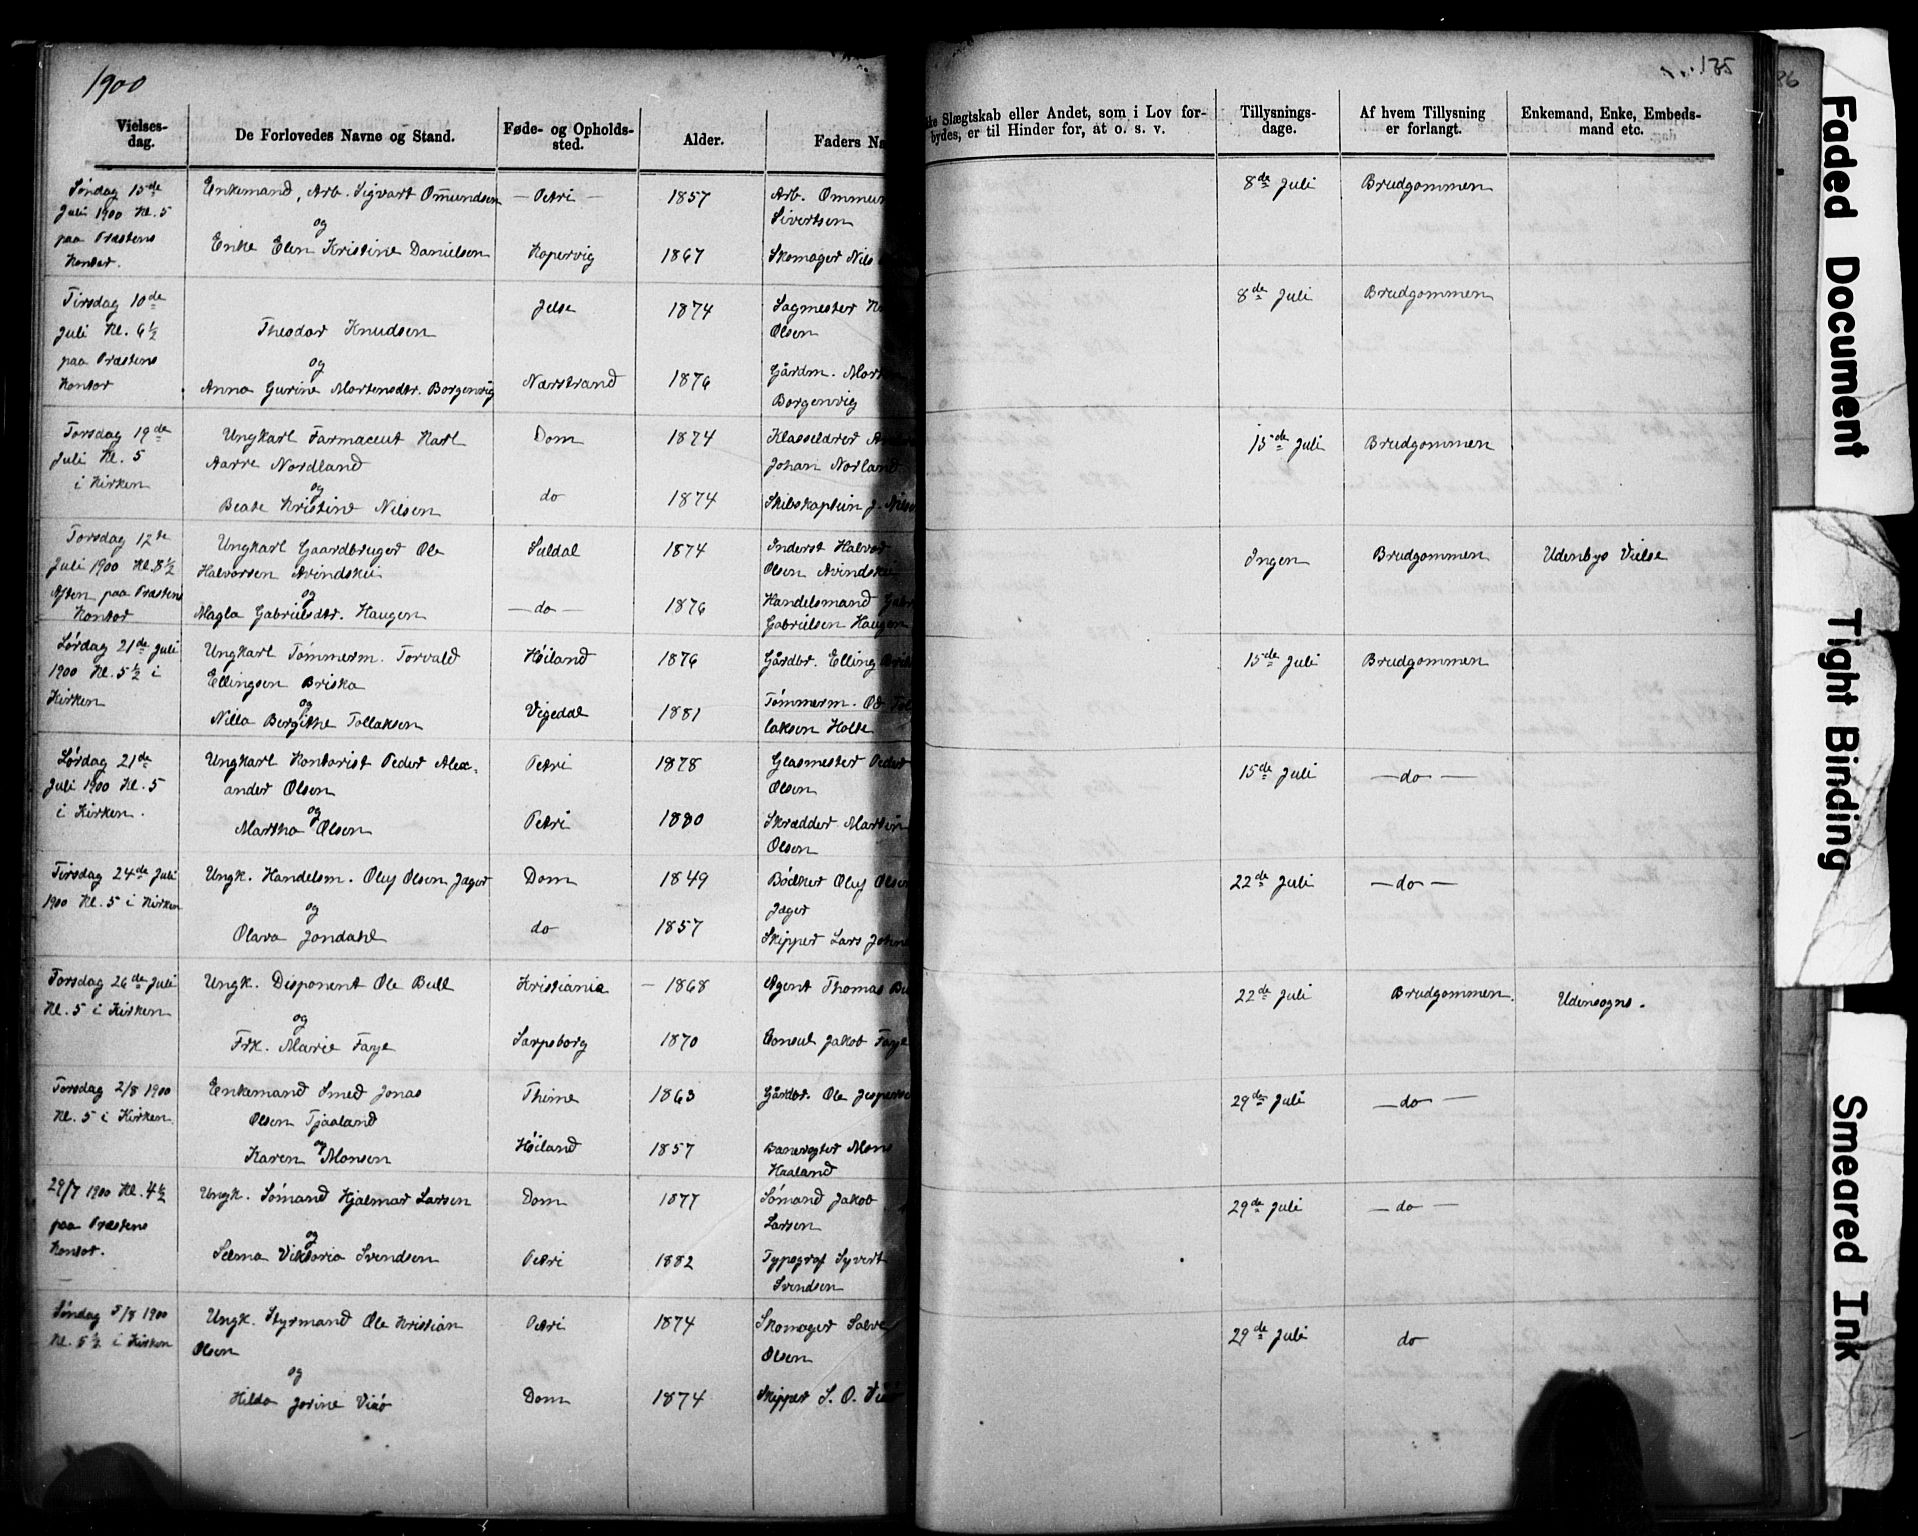 1900
135
86
Vielses-
dag.
De Forlovedes Navne og Stand.
Føde- og Opholds-
sted.
Alder.
Faders Na
ke Slægtskab eller Andet, som i Lov for-
bydes, er til Hinder for, at o. s. v.
Tillysnings-
dage.
Af hvem Tillysning
er forlangt.
Enkemand, Enke, Embeds-
mand etc.
Søndag 15de
Juli 1900 Kl. 5
paa Præstens
Kontor.
Enkemand, Arb. Sigvart Omundsen
og
Enke Elen Kristine Danielsen
— Petri —
Kopervig
1857
1867
Arb. Ommun
Sivertsen
Skomager Nils
8de Juli
Brudgommen
Tirsdag 10de
Juli Kl. 6½
paa Præstens
Kontor
Theodor Knudsen
og
Anna Gurine Mortensdtr. Borgenvig
Jelse
Nærstrand
1874
1876
Sagmester
Olsen
Gårdm. Mort
Borgenvig
8de Juli
Brudgommen
Torsdag 19de
Juli Kl. 5
i Kirken
Ungkarl Farmaceut Karl
Aarre Nordland
og
Beate Kristine Nilsen
Dom
do
1874
1874
Klasselærer
Johan Norland
Skibskaptein J. Nils
15de Juli
Brudgommen
Torsdag 12te
Juli 1900 Kl. 8½
Aften paa Præstens
Kontor
Ungkarl Gaardbruger Ole
Halvorsen Avindskei
og
Magla Gabrielsdtr. Haugen
Suldal
— do —
1874
1876
Inderst Halvor
Olsen Avindskei
Handelsmand Gabr
Gabrielsen Haugen
Ingen
Brudgommen
Udenbys Vielse
Lørdag 21de Juli
1900 Kl. 5½ i
Kirken
Ungkarl Tømmerm. Torvald
Ellingsen Briska
og
Nilla Bergithe Tollaksen
Høiland
Vigedal
1876
1881
Gårdbr. Elling Brisk
Tømmerm. Od Tol
laksen Holte
15de Juli
Brudgommen
Lørdag 21de
Juli 1900 Kl. 5
i Kirken.
Ungkarl Kontorist Peder Alex-
ander Olsen
og
Martha Olsen
Petri
Petri
1878
1880
Glasmester Peder
Olsen
Skrædder Martin
Olsen
15de Juli
— do —
Tirsdag 24de Juli
1900 Kl. 5 i Kirken
Ungk. Handelsm. Oluf Olsen Jæger
og
Olava Jondahl
Dom
do
1849
1857
Bødker Oluf Olsen
Jæger
Skipper Lars John
22de Juli
— do —
Torsdag 26de Juli
Kl. 5 i Kirken
Ungk. Disponent Ole Bull
og
Frk. Marie Faye
Kristiania
Sarpsborg
— 1868
1870
Agent Thomas Bu
Consul Jakob Faye
22de Juli
Brudgommen.
Udensogns.
Torsdag 2/8 1900
Kl. 5 i Kirken
Enkemand Smed Jonas
Olsen Tjaaland
og
Karen Monsen
Thime
Høiland
1863
1857
Gårdbr. Ole Jespers
Banevogter Mons
Haaland
29de Juli
— do —
29/7 1900 Kl. 4½
paa Præstens
Kontor.
Ungk. Sømand Hjalmar Larsen
og
Selma Viktoria Svendsen
Dom
Petri
1877
1882
Sømand Jakob
Larsen
Typograf Syvert
Svendsen
29de Juli
— do —
Søndag 5/8 1900
Kl. 5½ i Kirken
Ungk. Styrmand Ole Kristian
Olsen
og
Hilda Jorine Viør
Petri
Dom
1874
1874
Skomager Salve
Olsen
Skipper S. O.
29de Juli
do
Faded Document
Tight Binding
Smeared Ink